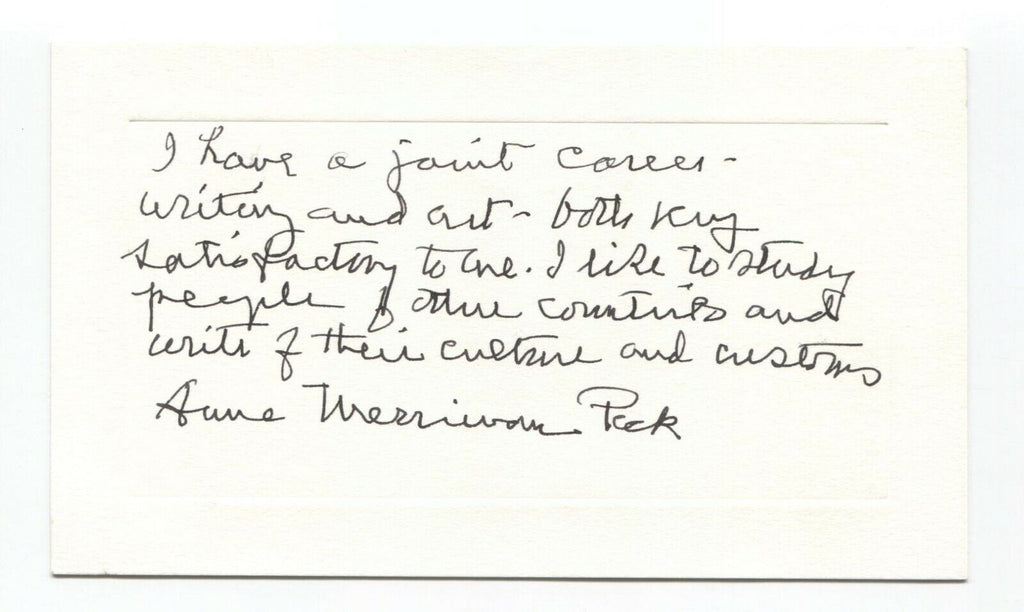 I have a joint career -
writing and art - both very
satisfactory to me. I like to study
people of other countries and
write of their culture and customs
Anne Merriman Peck